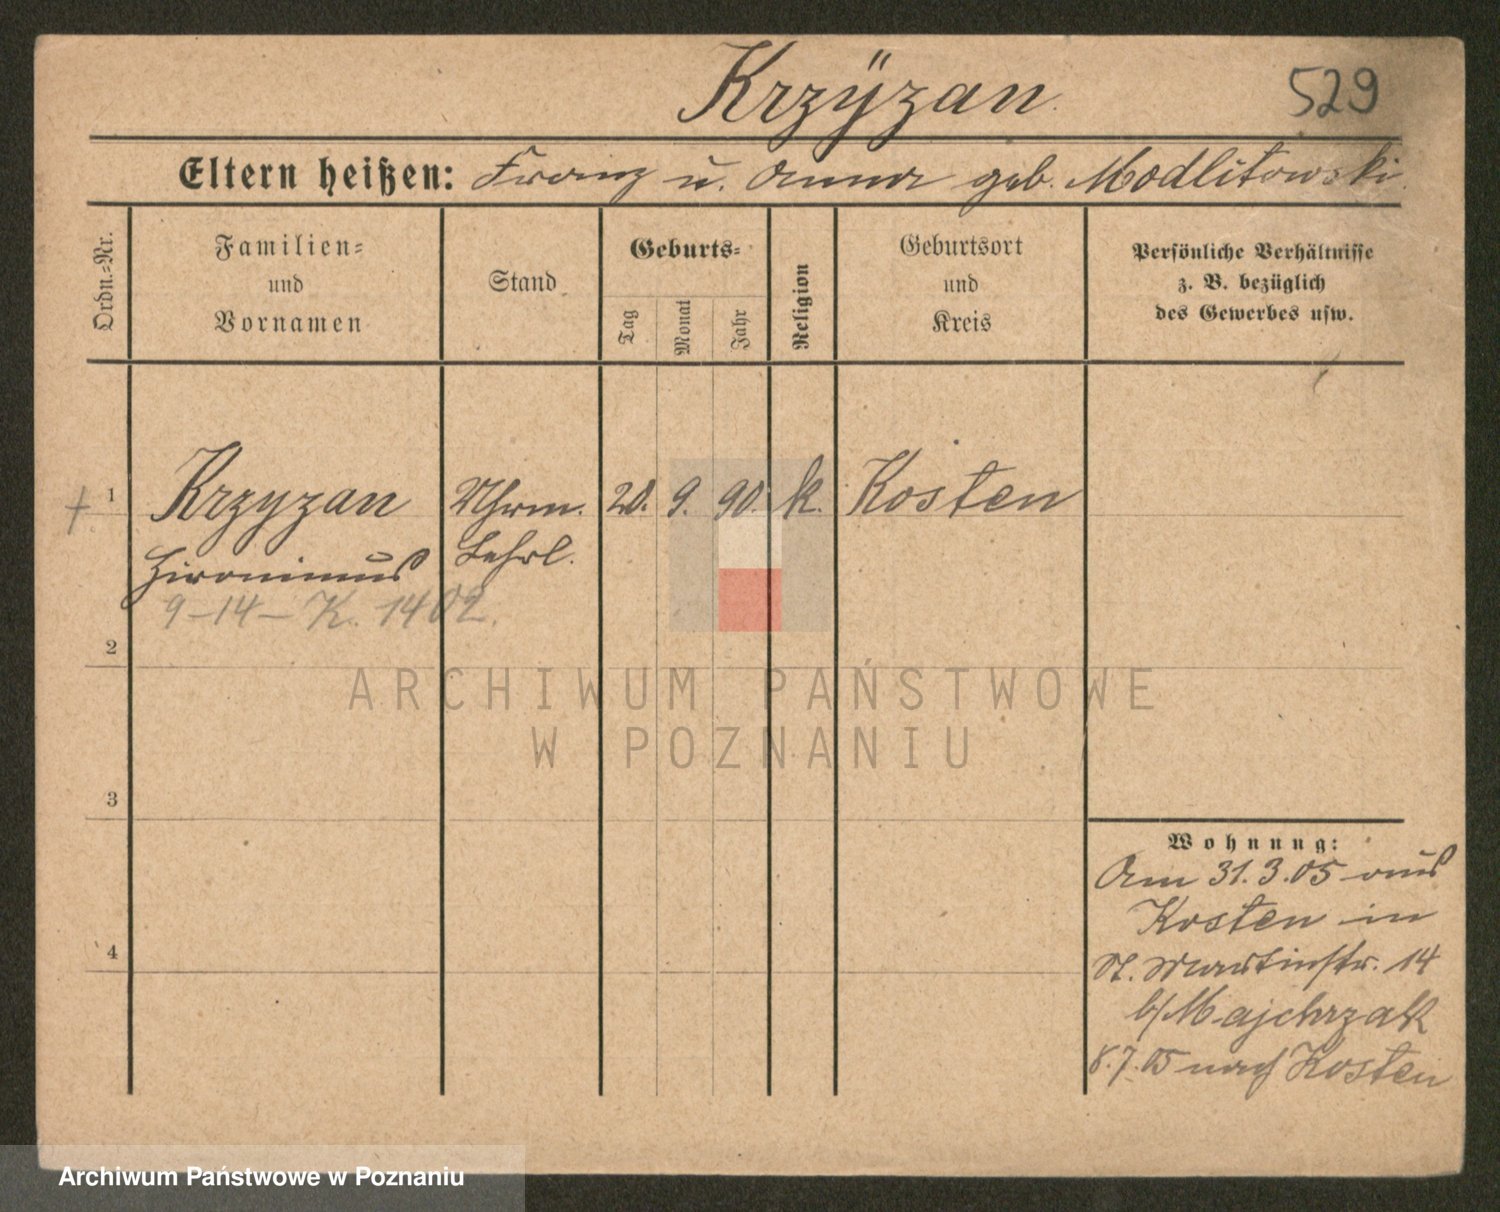 Krzÿzan
529
Eltern heißen: Franz u. Anna geb. Modlitowski.
Ordn.=Nr.
Familien=
und
Vornamen
Stand
Geburts=
Tag
Monat
Jahr
Religion
Geburtsort
und
Kreis
Persönliche Verhältnisse
z. B. bezüglich
des Gewerbes usw.
+ 1 Krzyzan Uhrm. 20. 9. 90. k. Kosten
Hironimus Lehrl.
9-14- K. 1402.
2
ARCHIWUM PAŃSTWOWE
W POZNANIU
3
Wohnung:
Am 31.3.05 aus
Kosten in
4
St. Martinstr. 14
b/Majchrzak
8.7.05 nach Kosten
Archiwum Państwowe w Poznaniu